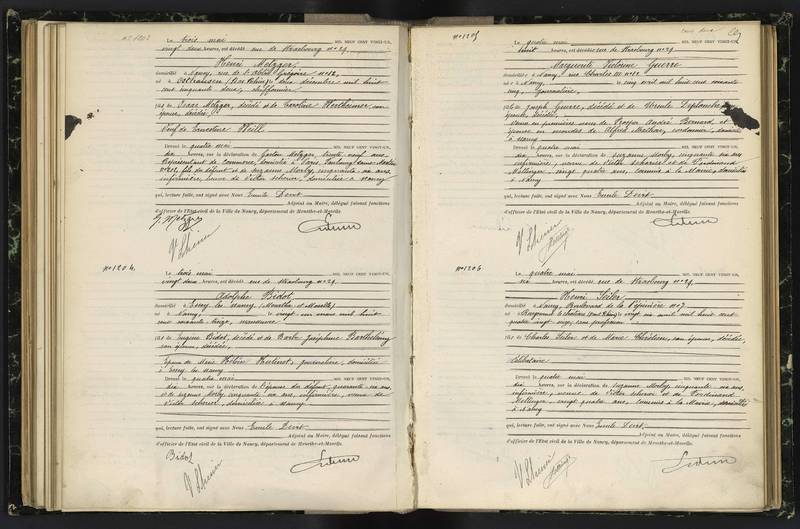 N° 1203
Le trois mai MIL NEUF CENT VINGT-UN,
vingt deux heures, est décédé rue de Strasbourg n° 29,
Henri Metzger
domicilié à Nancy, rue de l'Abbé Grégoire n° 12,
né à décembre mil huit
cent cinquante deux, chiffonnier
fils de Isaac Metzger, décédé et de Caroline Wertheimer son
épouse, décédée,
Veuf de Ernestine Weill
Devant le quatre mai MIL NEUF CENT VINGT-UN,
dix heures, sur la déclaration de Gaston Metzger, trente neuf ans
Représentant de Commerce, domicilié à Paris, Faubourg Saint
n° 211, fils du défunt et de Suzanne Morly, cinquante six ans,
infirmière, veuve de Victor Scherer, domiciliée à Nancy
qui, lecture faite, ont signé avec Nous Emile
Adjoint au Maire, délégué faisant fonctions
d'officier de l'Etat civil de la Ville de Nancy, département de Meurthe-et-Moselle.
G. Metzger
N° 1204
Le trois mai MIL NEUF CENT VINGT-UN,
vingt deux heures, est décédé rue de Strasbourg n° 29,
Adolphe Bidot
domicilié à Essey les Nancy (Meurthe et Moselle)
né à Nancy, le vingt un mars mil huit
cent soixante treize, manœuvre
fils de Eugène Bidot, décédé et de Barbe Joséphine Barthélemy
son épouse, décédée,
Epoux de Marie journalière, domiciliée
à Essey les Nancy
Devant le quatre mai MIL NEUF CENT VINGT-UN,
dix heures, sur la déclaration de l'épouse du défunt, quarante six ans
et de Suzanne Morly cinquante six ans, infirmière, veuve de
Victor Scherer, domiciliées à Nancy
qui, lecture faite, ont signé avec Nous Emile
Adjoint au Maire, délégué faisant fonctions
d'officier de l'Etat civil de la Ville de Nancy, département de Meurthe-et-Moselle.
Bidot
N° 1205
Le quatre mai MIL NEUF CENT VINGT-UN,
heures, est décédée rue de Strasbourg n° 29,
Marguerite Victorine Guerre
domiciliée à Nancy, rue Charles III
née à Nancy, le cinq avril mil huit cent soixante
cinq, journalière,
fille de Joseph Guerre, décédé et de
épouse, décédée,
Veuve en premières noces de Prosper André Bernard, et
épouse en secondes de Alfred cordonnier, domicilié
à Nancy
Devant le quatre mai MIL NEUF CENT VINGT-UN,
dix heures, sur la déclaration de Suzanne Morly, cinquante six ans
infirmière, veuve de Victor Scherer et de Ferdinand
vingt quatre ans, commis à la Mairie, domiciliés
à Nancy
qui, lecture faite, ont signé avec Nous Emile
Adjoint au Maire, délégué faisant fonctions
d'officier de l'Etat civil de la Ville de Nancy, département de Meurthe-et-Moselle.
N° 1206
Le quatre mai MIL NEUF CENT VINGT-UN,
six heures, est décédé rue de Strasbourg n° 29,
Henri
domicilié à Nancy, Boulevard de la Pépinière n° 7
né à le vingt six août mil huit cent
quatre vingt onze, sans profession
fils de Charles et de Marie Chrétien, son épouse, décédés,
Célibataire
Devant le quatre mai MIL NEUF CENT VINGT-UN,
dix heures, sur la déclaration de Suzanne Morly cinquante six ans,
infirmière, veuve de Victor Scherer et de Ferdinand
vingt quatre ans, commis à la Mairie, domiciliés
à Nancy
qui, lecture faite, ont signé avec Nous Emile
Adjoint au Maire, délégué faisant fonctions
d'officier de l'Etat civil de la Ville de Nancy, département de Meurthe-et-Moselle.